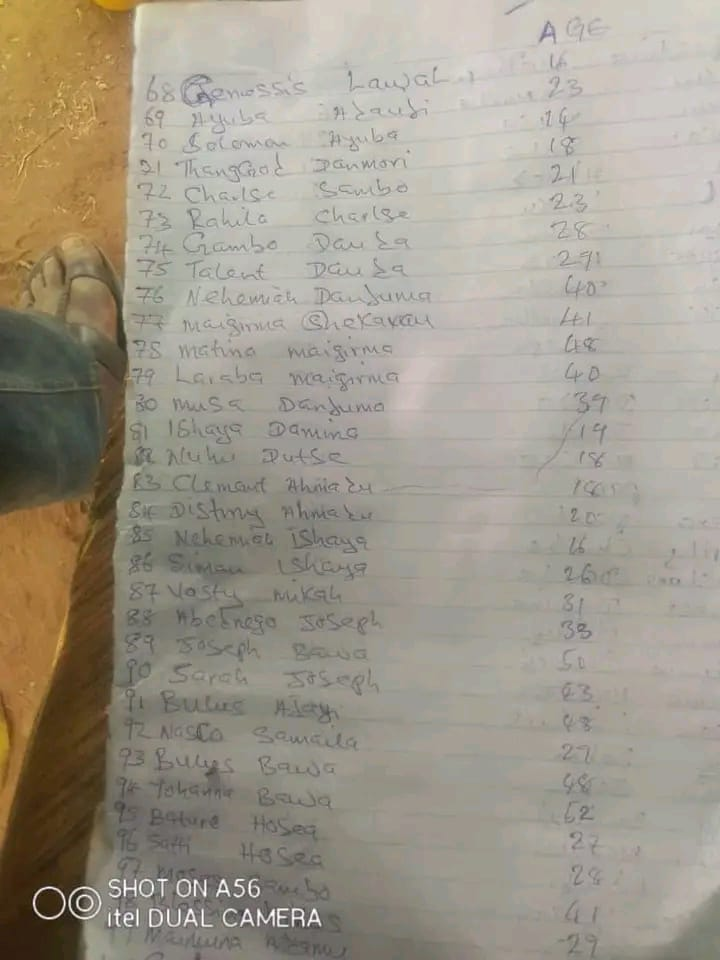 AGE
68 Genossis Lawal 16
69 Ayuba Adaudi 23
70 Solomon Ayuba 14
71 ThangGod Danmori 18
72 Charlse Sambo 21
73 Rahila Charlse 23
74 Gambo Dauda 28
75 Talent Dauda 29
76 Nehemiah Danjuma 40
77 maigirma Shekarau 41
78 matina maigirma 48
79 Laraba maigirma 40
80 musa Danjuma 39
81 Ishaya Damina 19
82 Nuhu Dutse 18
83 Clement Ahmadu 18
84 Distiny Ahmadu 20
85 Nehemiah ishaya 16
86 Simon Ishaya 26
87 Vasty mikah 31
88 Abednego Joseph 38
89 Joseph Bawa 50
90 Sarah Joseph 43
91 Bulus Ajayi 48
92 Nasco Samaila 27
93 Bulus Bawa 48
94 Yohanna Bawa 52
95 Bature Hosea 27
96 Hosea 28
97 41
29
SHOT ON A56
itel DUAL CAMERA